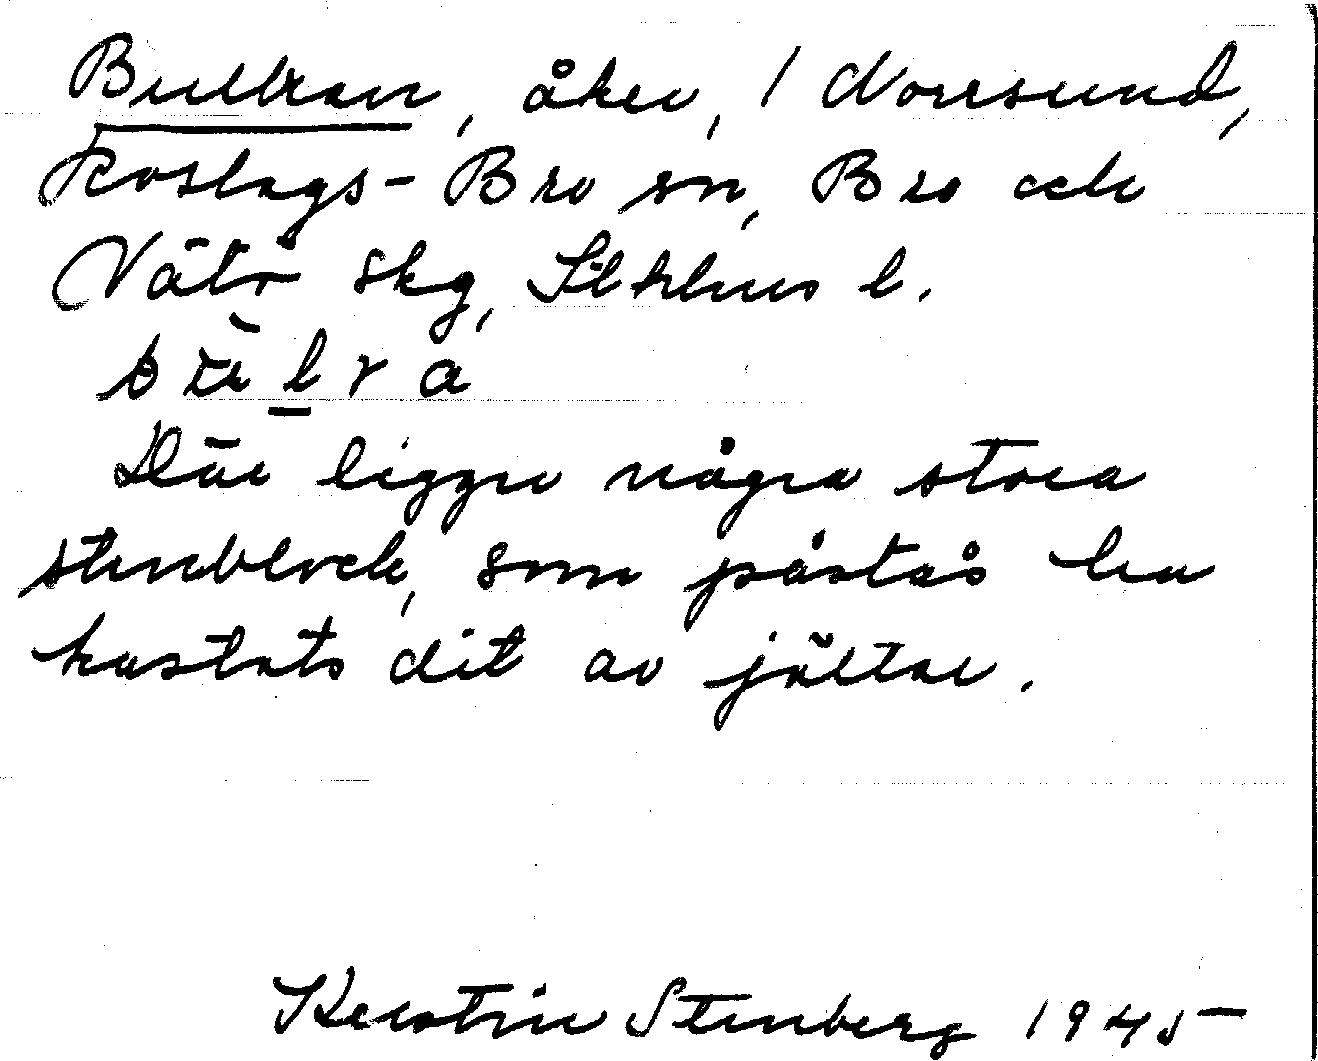 Bullran, åker, 1 Norrsund,
Roslags-Bro sn, Bro och
Vätö skg, Sthlms l.
Där ligger några stora
stenblock, som påstås ha
kastats dit av jättar.
Kerstin Stenberg 1945